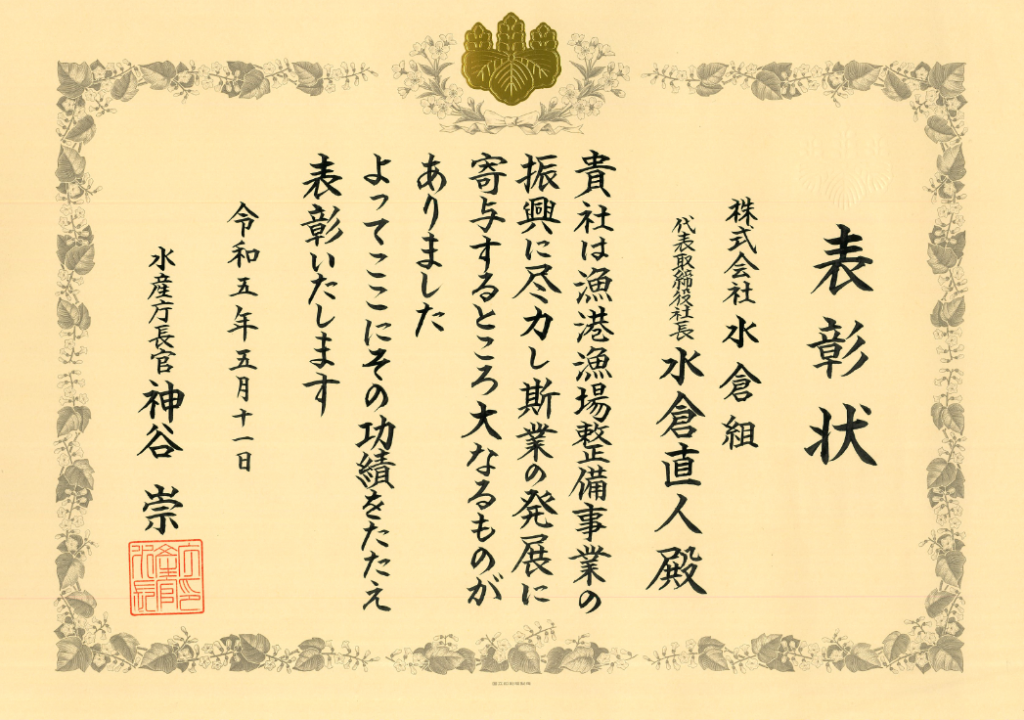 表彰状
株式会社 水倉組
代表取締役社長 水倉直人殿
貴社は漁港漁場整備事業の
振興に尽力し斯業の発展に
寄与するところ大なるものが
ありました
よってここにその功績をたたえ
表彰いたします
令和五年五月十一日
水産庁長官 神谷 崇